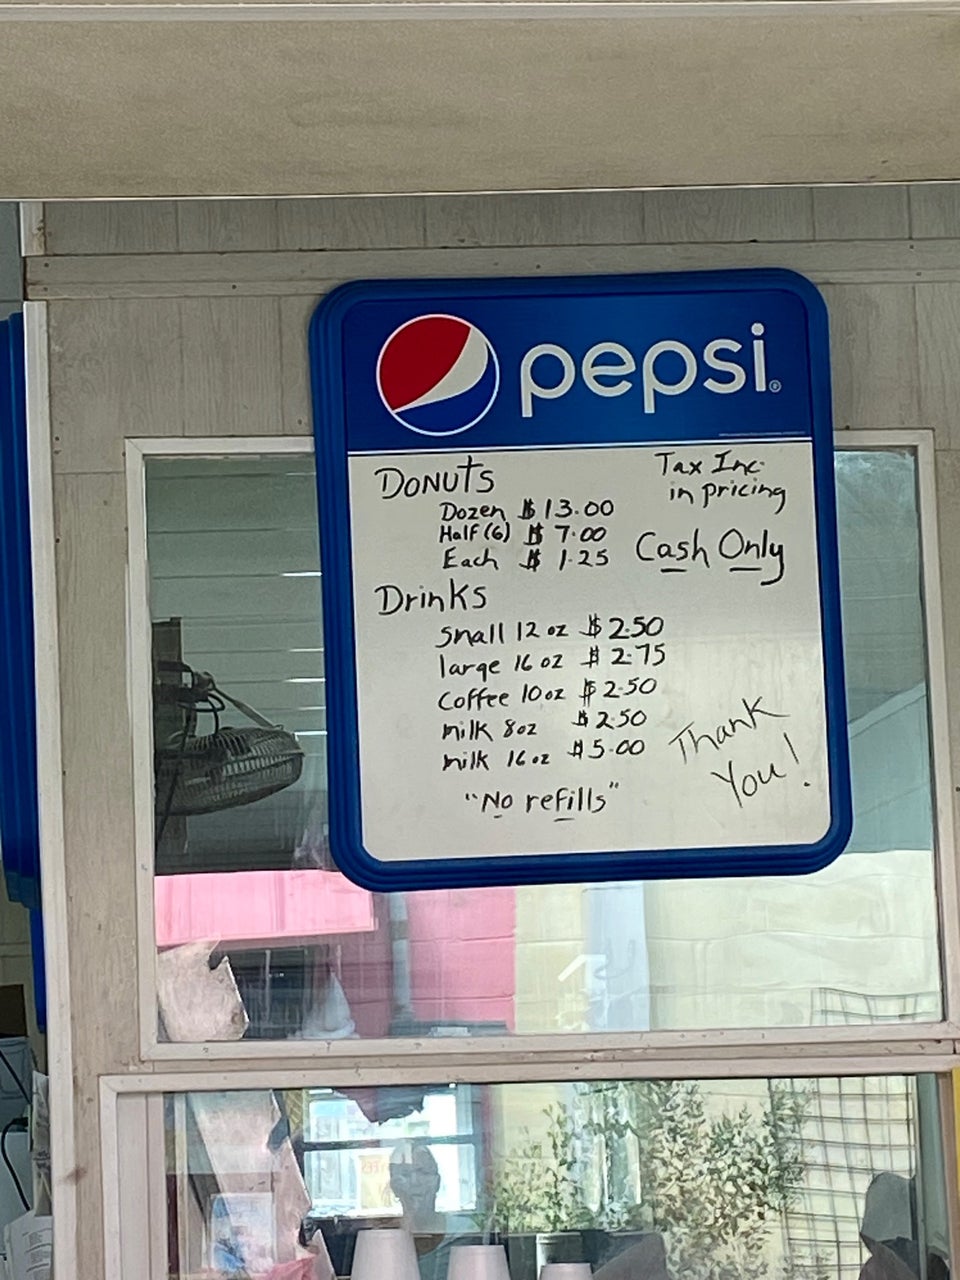 pepsi®
DONUTS
Dozen $13.00
Half (6) $ 7.00
Each $ 1.25
Tax Inc.
in pricing
Cash Only
Drinks
small 12 oz $2.50
large 16 oz $2.75
Coffee 10oz $2.50
milk 8oz $2.50
milk 16 oz $5.00
"No refills"
Thank
You!